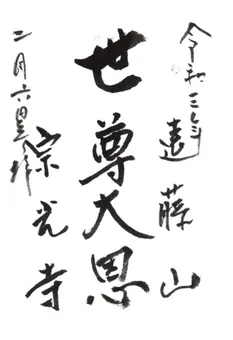 令和三年
遠藤山
世尊大恩
宗光寺
二月六日 拝